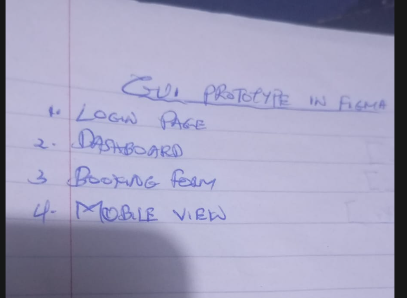 GUI PROTOTYPE IN FIGMA
1. LOGIN PAGE
2. DASHBOARD
3 BOOKING FORM
4. MOBILE VIEW